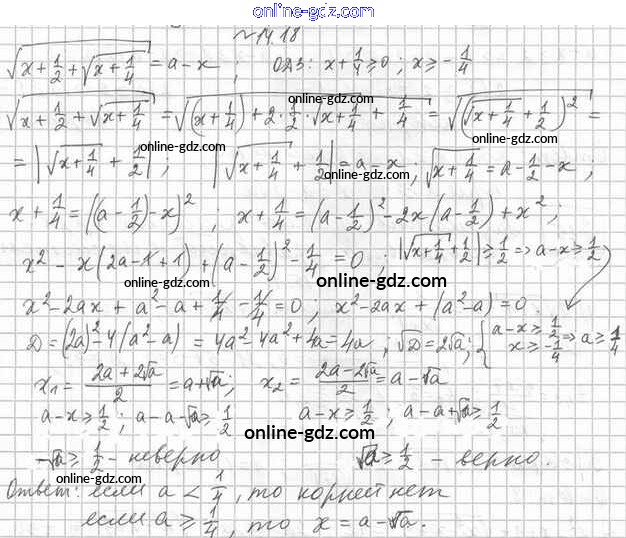 online-gdz.com
№ 14.18
√(x + 1/2 + √(x + 1/4)) = a - x ; ОДЗ: x + 1/4 ≥ 0 ; x ≥ -1/4
online-gdz.com
√(x + 1/2 + √(x + 1/4)) = √((x + 1/4) + 2 · 1/2 · √(x + 1/4) + 1/4) = √((√(x + 1/4) + 1/2)²) =
online-gdz.com
online-gdz.com
= |√(x + 1/4) + 1/2| ; |√(x + 1/4) + 1/2| = a - x ; √(x + 1/4) = a - 1/2 - x ;
online-gdz.com
x + 1/4 = ((a - 1/2) - x)² ; x + 1/4 = (a - 1/2)² - 2x(a - 1/2) + x² ;
x² - x(2a - 1 + 1) + (a - 1/2)² - 1/4 = 0 ; |√(x + 1/4) + 1/2| ≥ 1/2 ⇒ a - x ≥ 1/2
online-gdz.com
online-gdz.com
x² - 2ax + a² - a + 1/4 - 1/4 = 0 , x² - 2ax + (a² - a) = 0
online-gdz.com
D = (2a)² - 4(a² - a) = 4a² - 4a² + 4a = 4a ; √D = 2√a ; { a - x ≥ 1/2 x ≥ -1/4 ⇒ a ≥ 1/4
x₁ = (2a + 2√a)/2 = a + √a ; x₂ = (2a - 2√a)/2 = a - √a
online-gdz.com
a - x ≥ 1/2 ; a - a - √a ≥ 1/2 a - x ≥ 1/2 ; a - a + √a ≥ 1/2
online-gdz.com
-√a ≥ 1/2 - неверно √a ≥ 1/2 - верно.
online-gdz.com
Ответ: если a < 1/4, то корней нет
если a ≥ 1/4, то x = a - √a.
online-gdz.com